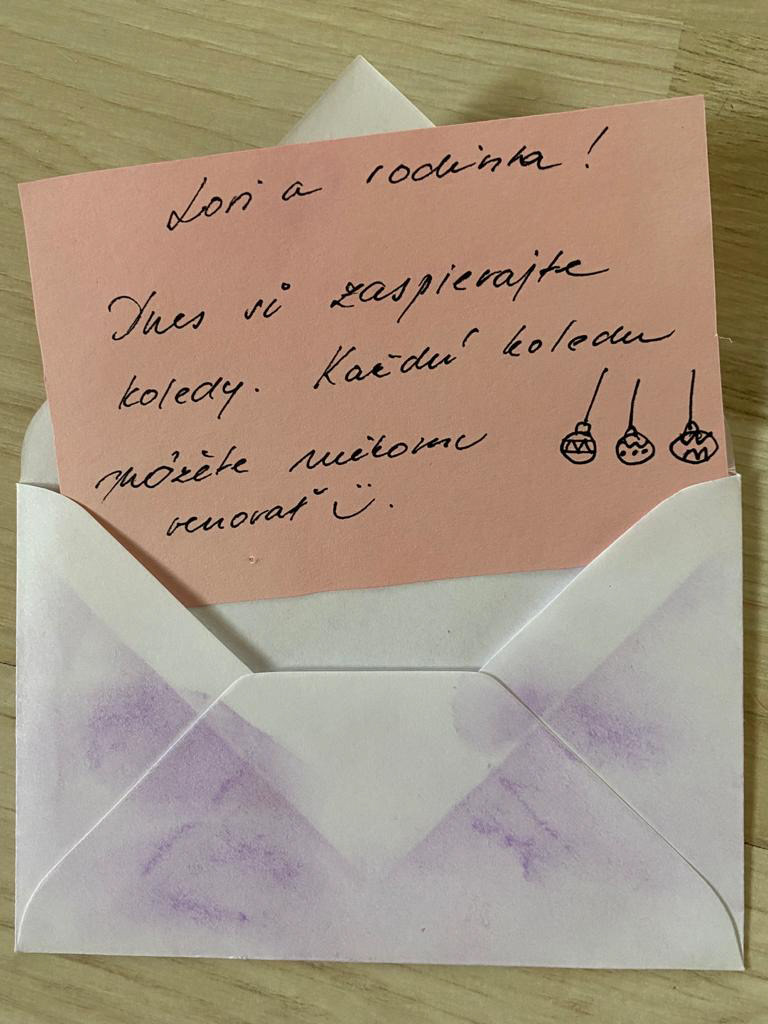 Lori a rodinka!
Dnes si zaspievajte
koledy. Každú koledu
môžete niekomu
venovať :).